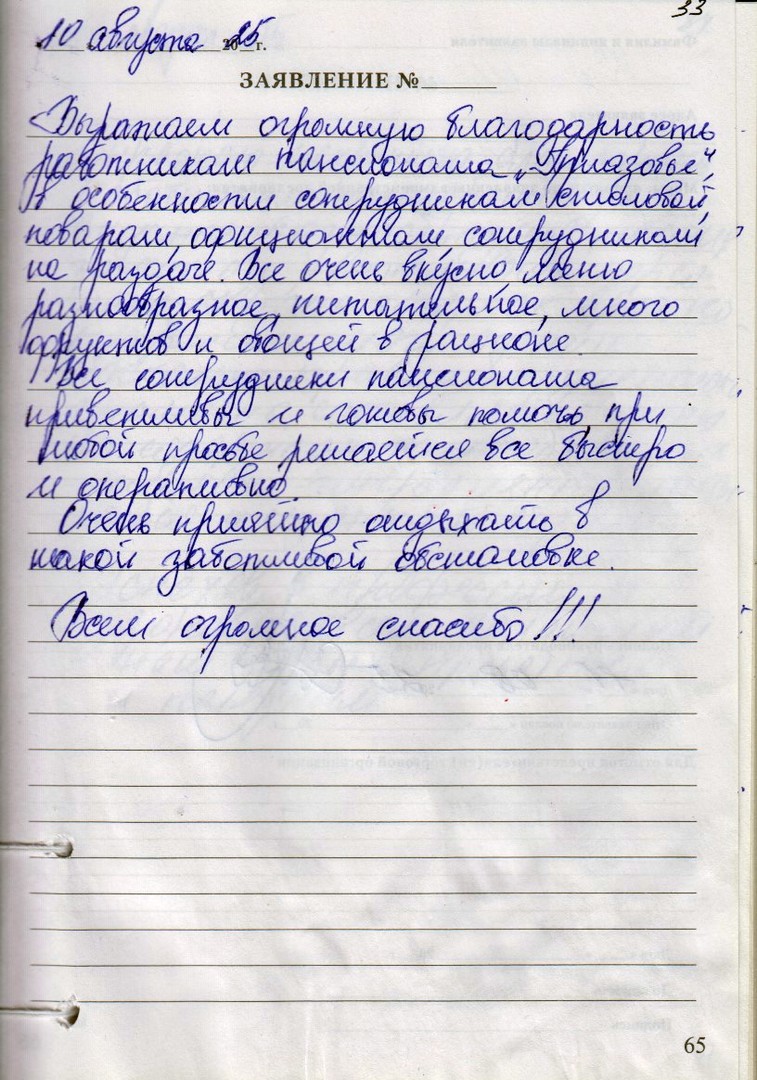 33
10 августа 2015 г.
ЗАЯВЛЕНИЕ №
Выражаем огромную благодарность
работникам пансионата „Приазовье",
в особенности сотрудникам столовой,
поварам, официантам, сотрудникам
на раздаче. Все очень вкусно, меню
разнообразное, питательное, много
фруктов и овощей в рационе.
Все сотрудники пансионата
приветливы и готовы помочь, при
любой просьбе решается все быстро
и оперативно.
Очень приятно отдыхать в
такой заботливой обстановке.
Всем огромное спасибо!!!
65